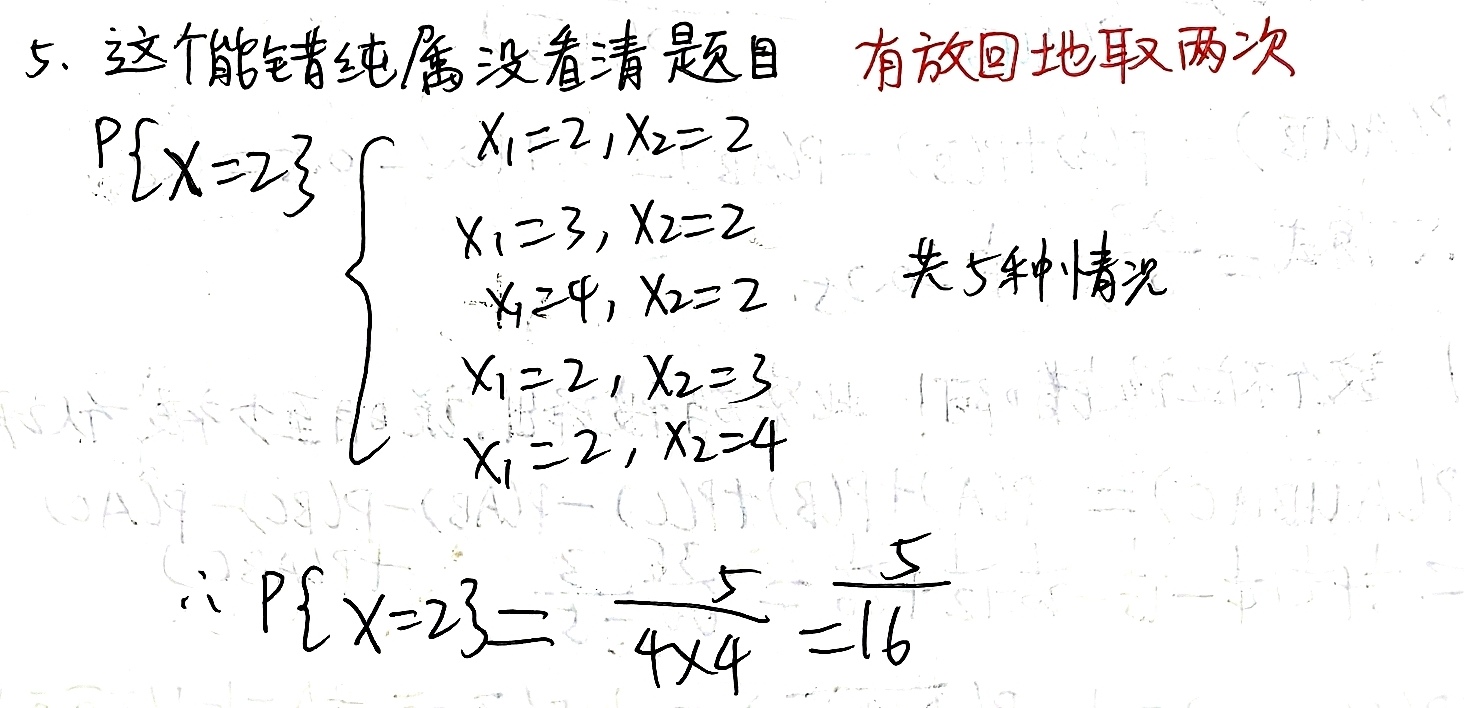 5、这个能错纯属没看清题目 有放回地取两次
P{X=2} {
X₁=2, X₂=2
X₁=3, X₂=2
X₁=4, X₂=2
共5种情况
X₁=2, X₂=3
X₁=2, X₂=4
∴ P{X=2} = 5/(4×4) = 5/16